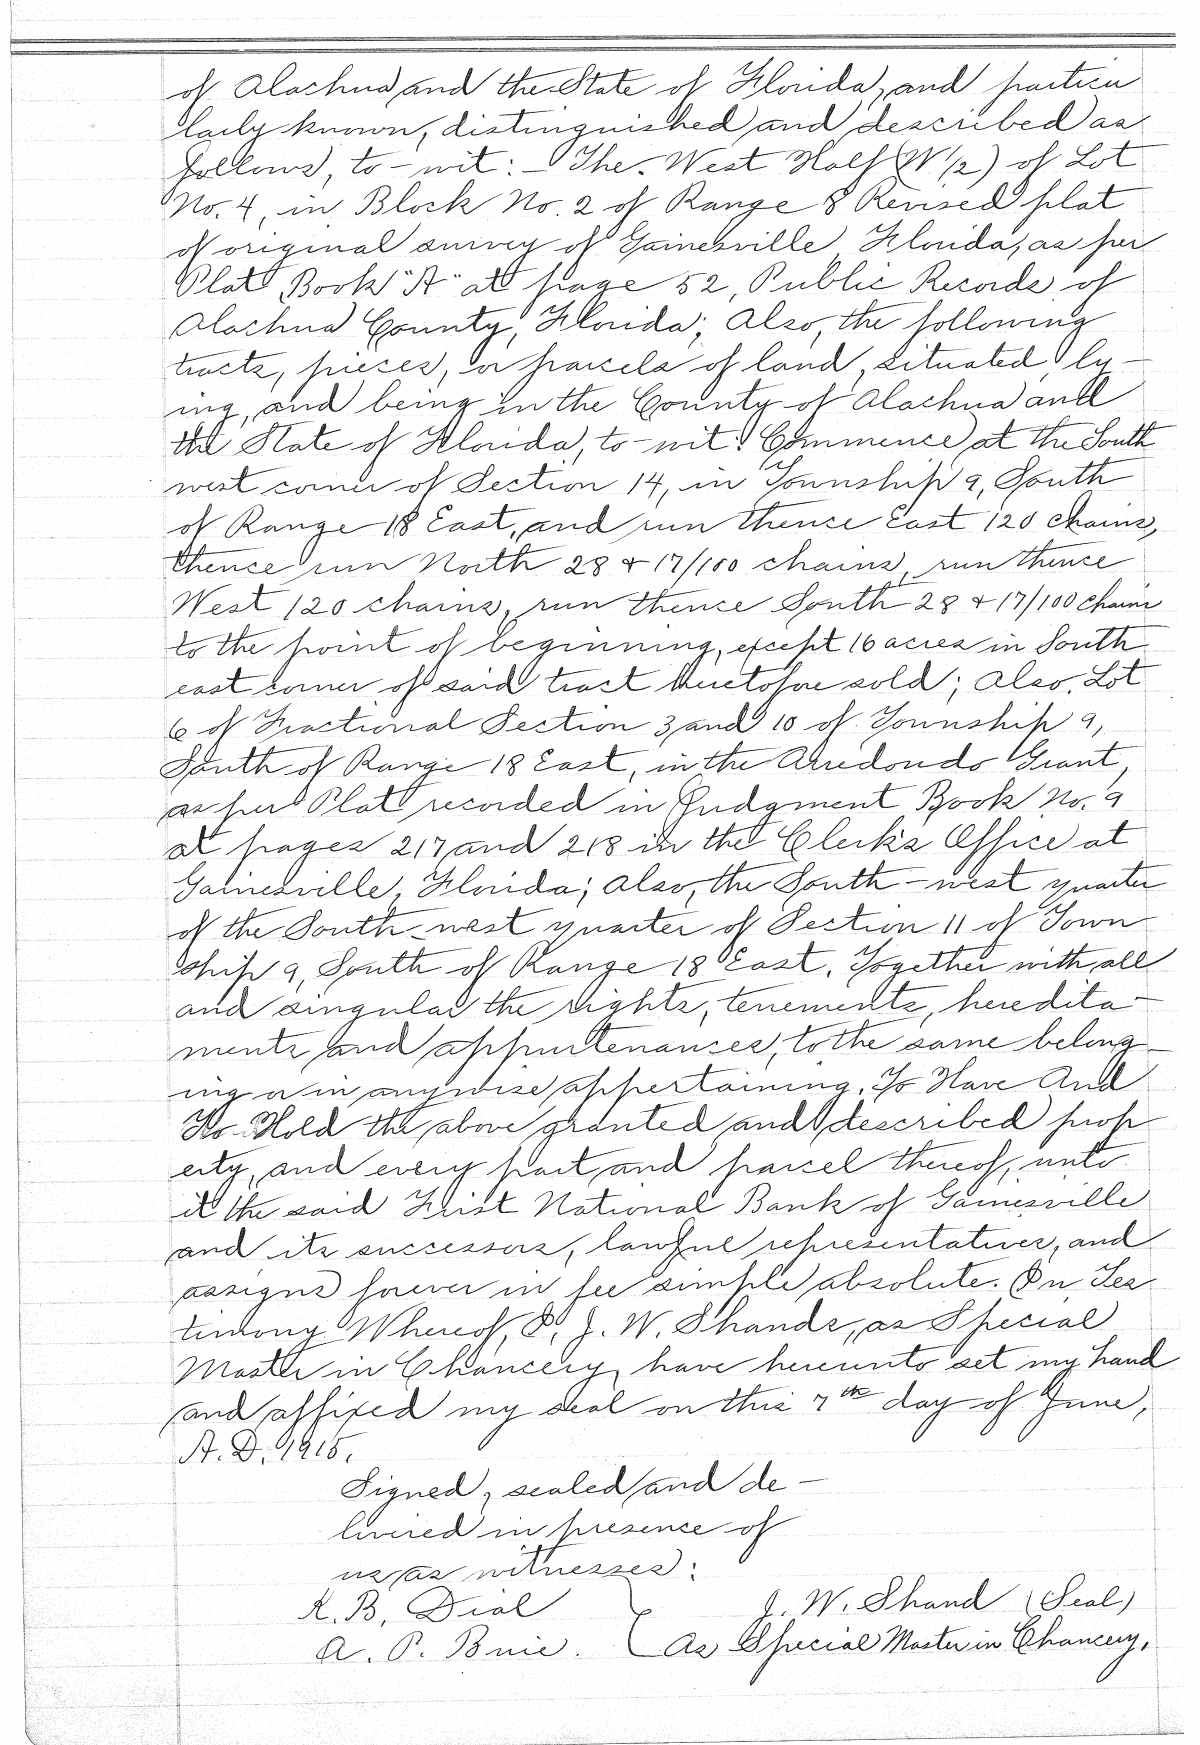 of Alachua and the State of Florida, and particu
larly known, distinguished and described as
follows, to-wit:- The West Half (W 1/2) of Lot
No. 4, in Block No. 2 of Range 8 Revised plat
of original survey of Gainesville, Florida, as per
Plat Book "A" at page 52, Public Records of
Alachua County, Florida; Also, the following
tracts, pieces, or parcels of land, situated, ly-
ing, and being in the County of Alachua and
the State of Florida, to-wit: Commence at the South
west corner of Section 14, in Township 9, South
of Range 18 East, and run thence East 120 chains,
thence run North 28 & 17/100 chains, run thence
West 120 chains, run thence South 28 & 17/100 chains
to the point of beginning, except 16 acres in South
east corner of said tract heretofore sold; Also, Lot
6 of Fractional Section 3 and 10 of Township 9,
South of Range 18 East, in the Arredondo Grant,
as per Plat recorded in Judgment Book No. 9
at pages 217 and 218 in the Clerk's Office at
Gainesville, Florida; Also, the South-west quarter
of the South-west quarter of Section 11 of Town
ship 9, South of Range 18 East. Together with all
and singular the rights, tenements, heredita-
ments and appurtenances, to the same belong-
ing or in anywise appertaining. To Have And
To Hold the above granted and described prop
erty, and every part and parcel thereof, unto
it the said First National Bank of Gainesville
and its successors, lawful representatives, and
assigns forever in fee simple absolute. In Tes
timony Whereof, I, J. W. Shands, as Special
Master in Chancery, have hereunto set my hand
and affixed my seal on this 7th day of June,
A. D. 1915.
Signed, sealed and de-
livered in presence of
us as witnesses:
K. B. Dial } J. W. Shand (Seal)
A. P. Buie. As Special Master in Chancery.